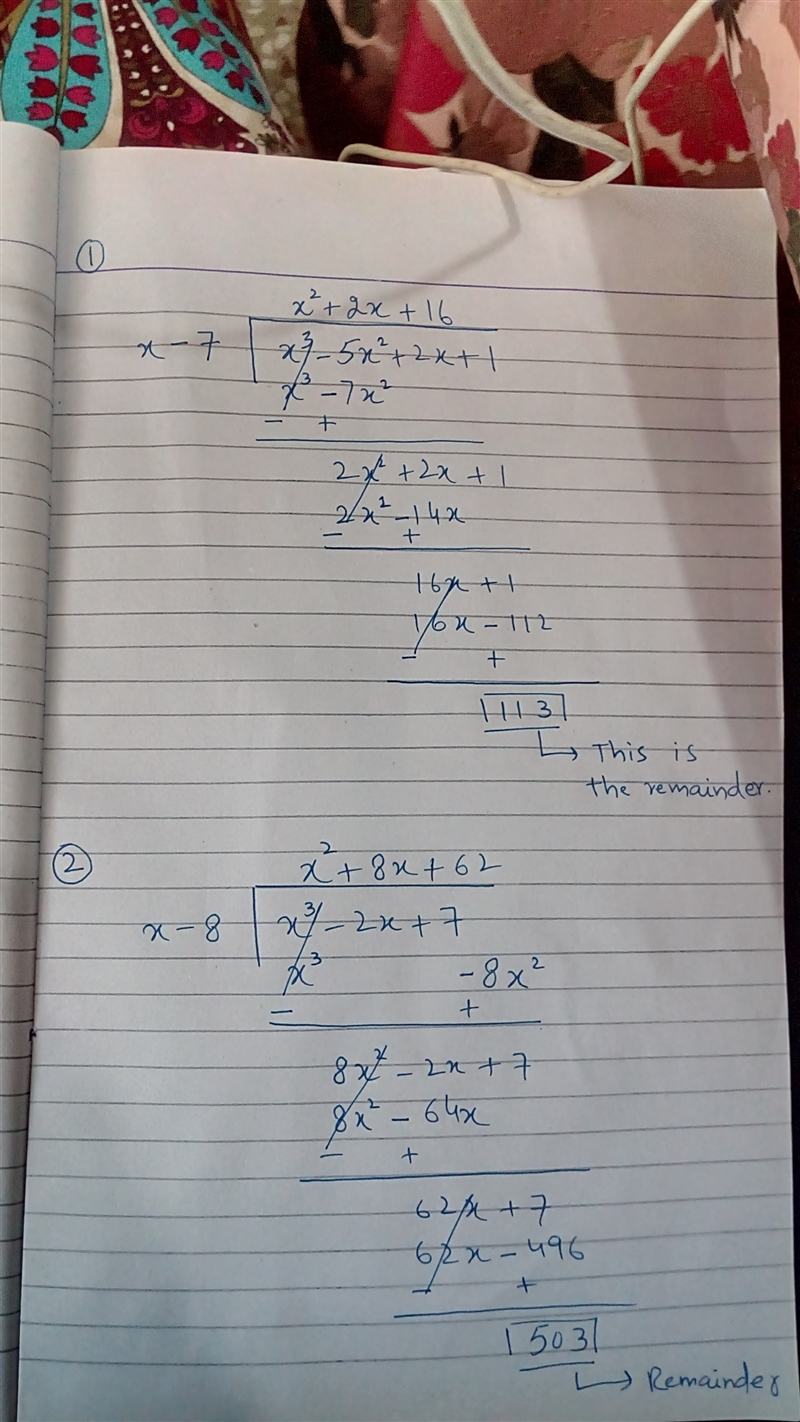 ①
x² + 2x + 16
x - 7 x³ - 5x² + 2x + 1
x³ - 7x²
- +
2x² + 2x + 1
2x² - 14x
- +
16x + 1
16x - 112
- +
113
↳ This is
the remainder.
②
x² + 8x + 62
x - 8 x³ - 2x + 7
x³ - 8x²
- +
8x² - 2x + 7
8x² - 64x
- +
62x + 7
62x - 496
- +
503
↳ Remainder